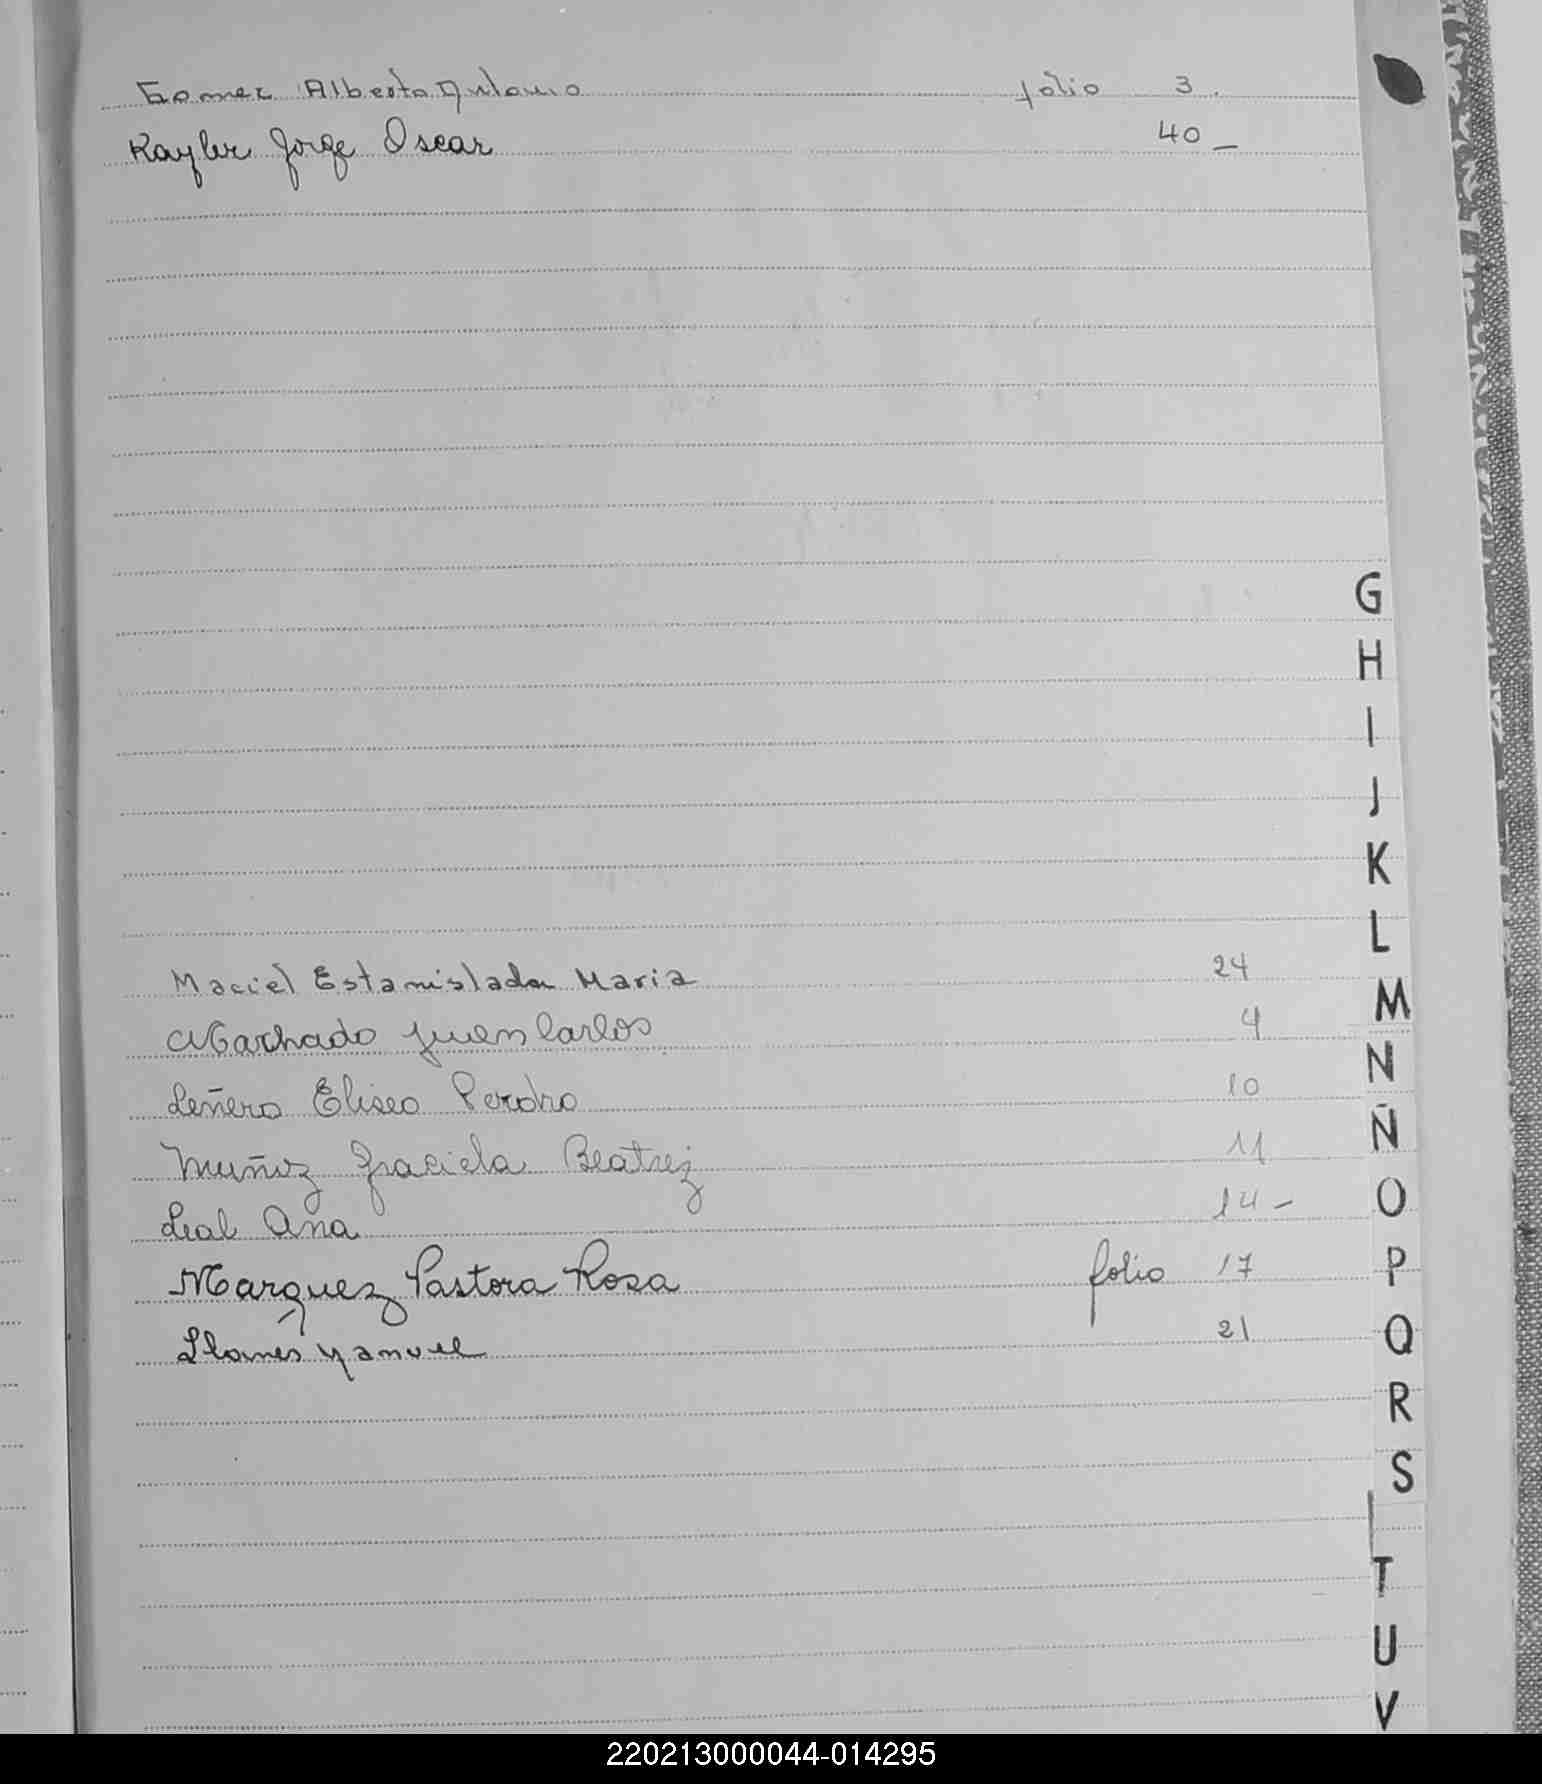 Gomez Alberto Antonio folio 3.
Kayler Jorge Oscar 40 -
G
H
I
J
K
L
Maciel Estanislada Maria 24
M
Machado Juan Carlos 4
N
Leñero Eliseo Pedro 10
Ñ
Muñoz Graciela Beatriz 11
Leal Ana 14 -
O
Marquez Pastora Rosa folio 17
P
Llanes Manuel 21
Q
R
S
T
U
V
220213000044-014295